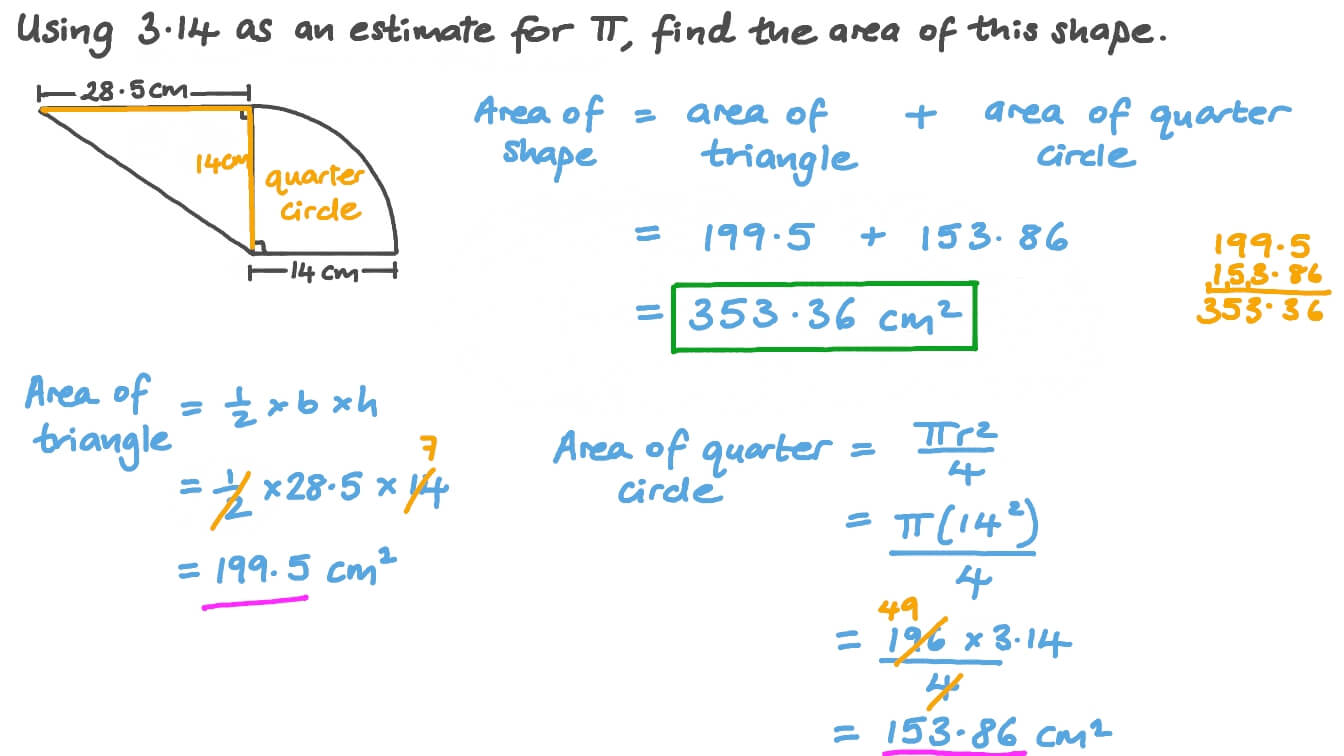 Using 3.14 as an estimate for π, find the area of this shape.
28.5cm
14cm
quarter
circle
14 cm
Area of shape = area of triangle + area of quarter circle
= 199.5 + 153.86
= 353.36 cm²
199.5
153.86
353.36
Area of triangle = 1/2 × b × h
7
= 1/2 × 28.5 × 14
= 199.5 cm²
Area of quarter circle = πr²/4
= π(14²)/4
49
= 196 × 3.14/4
= 153.86 cm²